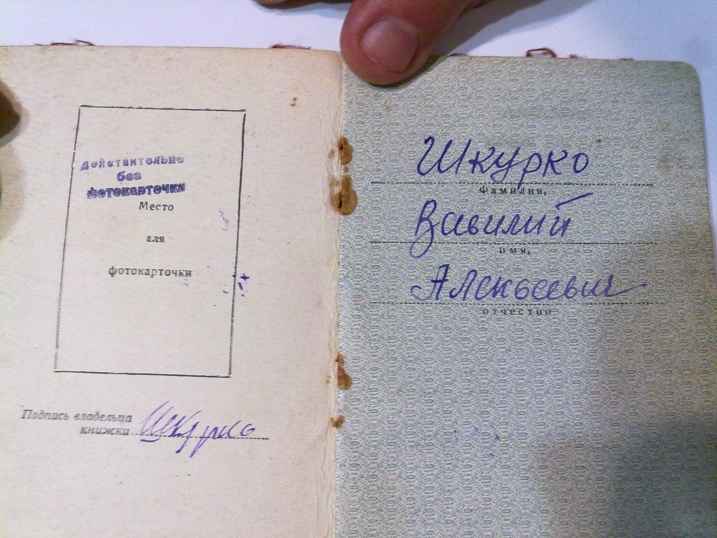 действительно
без
фотокарточки
Место
для
фотокарточки
Подпись владельца
книжки Шкурко
Шкурко
фамилия,
Вавилий
имя,
Алексеевич
отчество